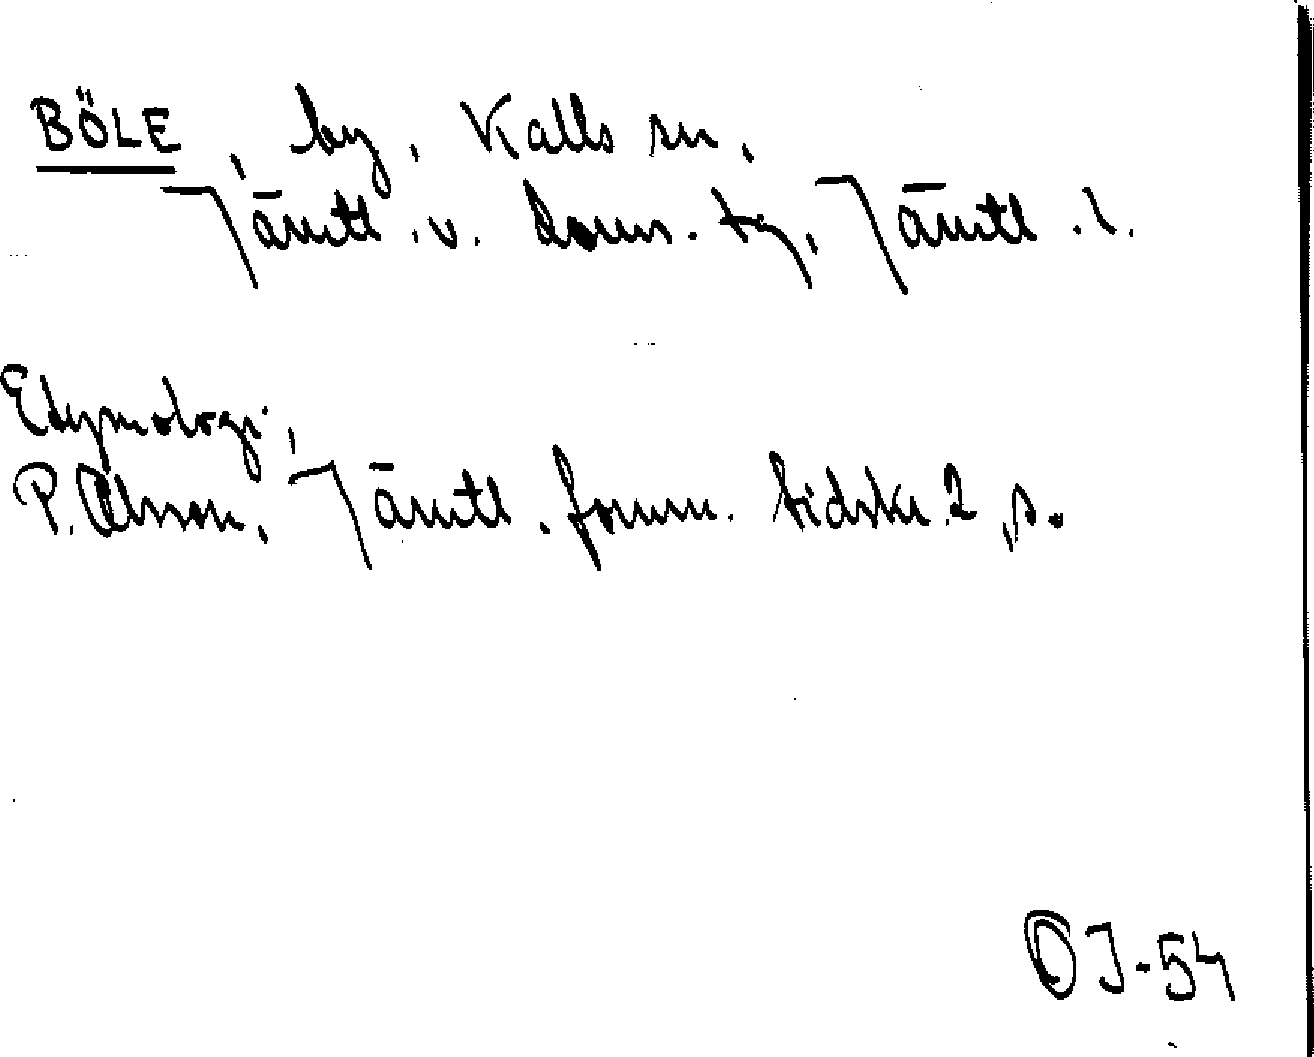 BÖLE, by, Kalls sn,
Jämtl. v. doms. tg, Jämtl. l.
Etymologi,
P. Olsson, Jämtl. fornm. tidskr. 2, s.
OJ-54